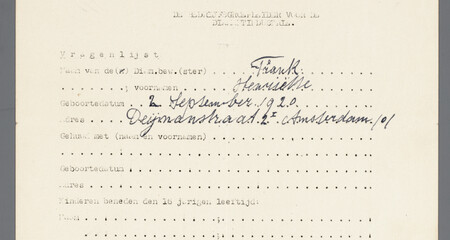 DE VOOR DE
V r a g e n l i j s t
Naam van de(n) Dien.bew.(ster) Frank
voornamen Henriëtte
Geboortedatum 2 September 1920
Adres Deijmanstraat 2I Amsterdam /o/
Gehuwd met (naam en voornamen)
Geboortedatum
Adres
Kinderen beneden den 16 jarigen leeftijd:
Naam